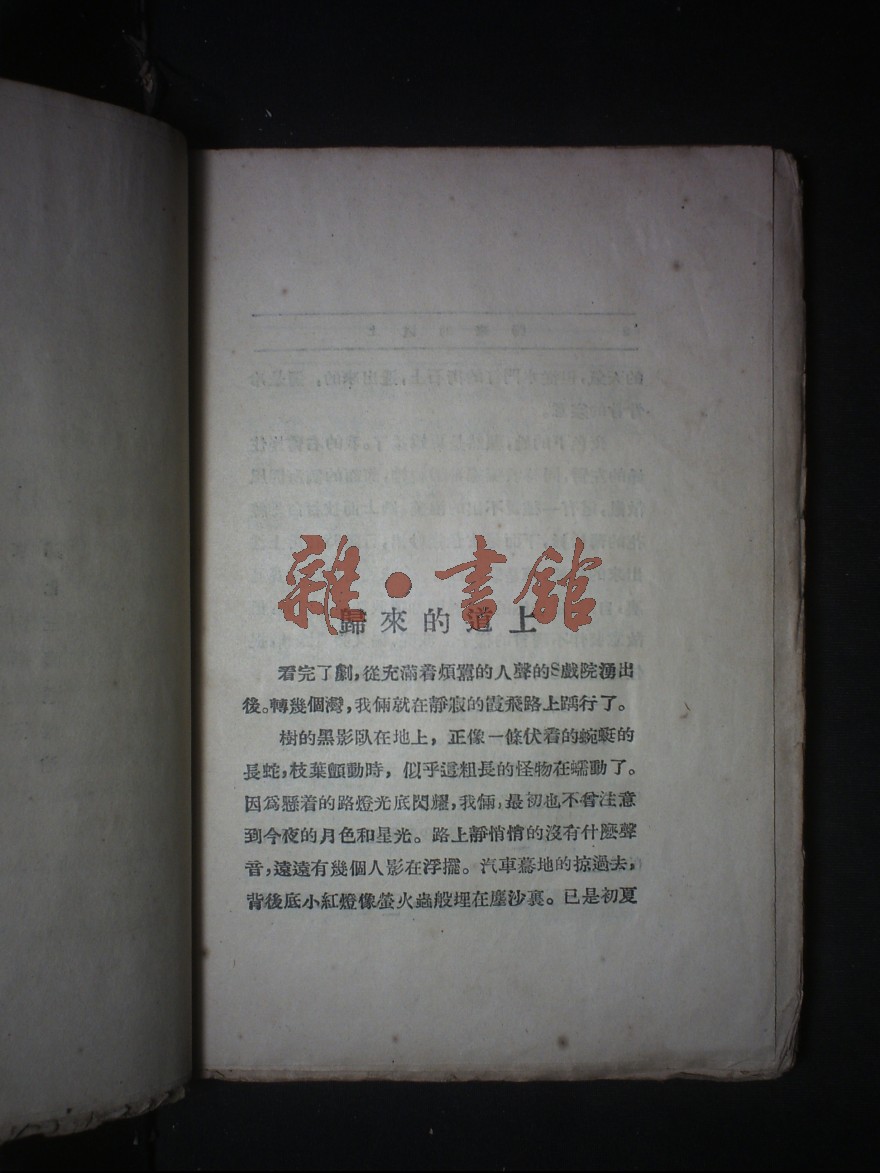 雜·書館
歸來的道上
看完了劇，從充滿着煩囂的人聲的S戲院湧出
後。轉幾個灣，我倆就在靜寂的霞飛路上踽行了。
樹的黑影臥在地上，正像一條伏着的蜿蜒的
長蛇，枝葉顫動時，似乎這粗長的怪物在蠕動了。
因爲懸着的路燈光底閃耀，我倆，最初也不曾注意
到今夜的月色和星光。路上靜悄悄的沒有什麽聲
音，遠遠有幾個人影在浮擺。汽車驀地的掠過去，
背後底小紅燈像螢火蟲般埋在塵沙裏。已是初夏